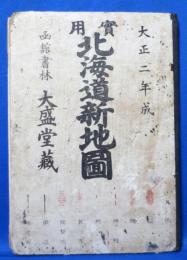 大正二年成
實用
北海道新地圖
函館書林
大盛堂藏